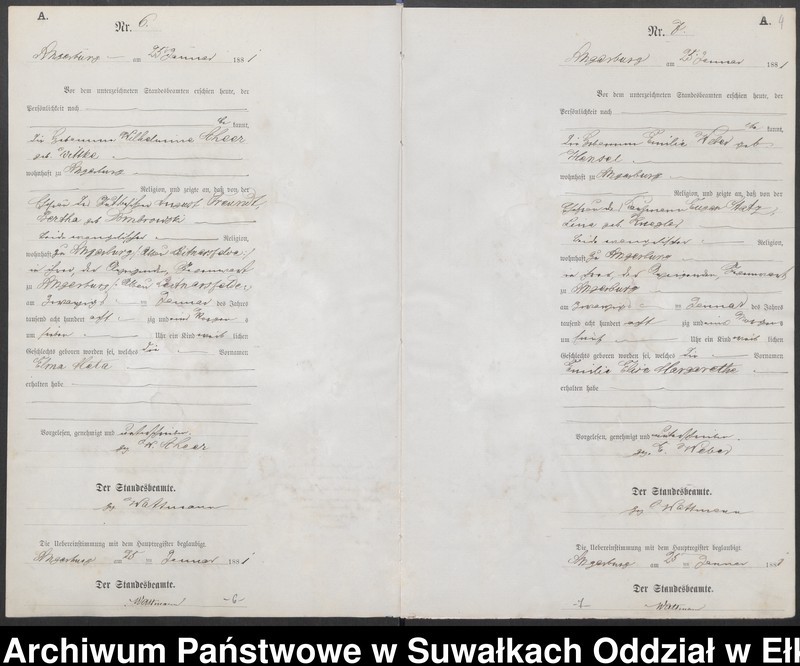 A.
Nr. 6.
Angerburg am 25 Januar 1881
Vor dem unterzeichneten Standesbeamten erschien heute, der
Persönlichkeit nach
kannt,
die Hebamme Wilhelmine Scheer
geb. Wittke
wohnhaft zu Angerburg
Religion, und zeigte an, daß von der
Ehefrau des August
Bertha geb. Dombrowski
beide evangelischer Religion,
wohnhaft zu Angerburg
in ihrer, der
zu Angerburg
am zwanzigs Januar des Jahres
tausend acht hundert acht zig und eins Morgens
um sieben Uhr ein Kind weib lichen
Geschlechts geboren worden sei, welches die Vornamen
Erna Meta
erhalten habe
Vorgelesen, genehmigt und unterschrieben.
gez W. Scheer
Der Standesbeamte.
gez Wattmann
Die Uebereinstimmung mit dem Hauptregister beglaubigt.
Angerburg am 25 Januar 1881
Der Standesbeamte.
Wattmann
-6-
A. 4
Nr. 7.
Angerburg am 25 Januar 1881
Vor dem unterzeichneten Standesbeamten erschien heute, der
Persönlichkeit nach
kannt,
die Hebamme Emilie Weber geb
Hensel
wohnhaft zu Angerburg
Religion, und zeigte an, daß von der
Ehefrau des Kaufmann Eugen
Lina geb.
beide evangelischer Religion,
wohnhaft zu Angerburg
in ihrer, der
zu Angerburg
am zwanzigs Januar des Jahres
tausend acht hundert acht zig und eins Morgens
um fünf Uhr ein Kind weib lichen
Geschlechts geboren worden sei, welches die Vornamen
Emilie Margarethe
erhalten habe
Vorgelesen, genehmigt und unterschrieben.
gez. E. Weber
Der Standesbeamte.
gez Wattmann
Die Uebereinstimmung mit dem Hauptregister beglaubigt.
Angerburg am 25 Januar 1881
Der Standesbeamte.
Wattmann
Archiwum Państwowe w Suwałkach Oddział w Ełk